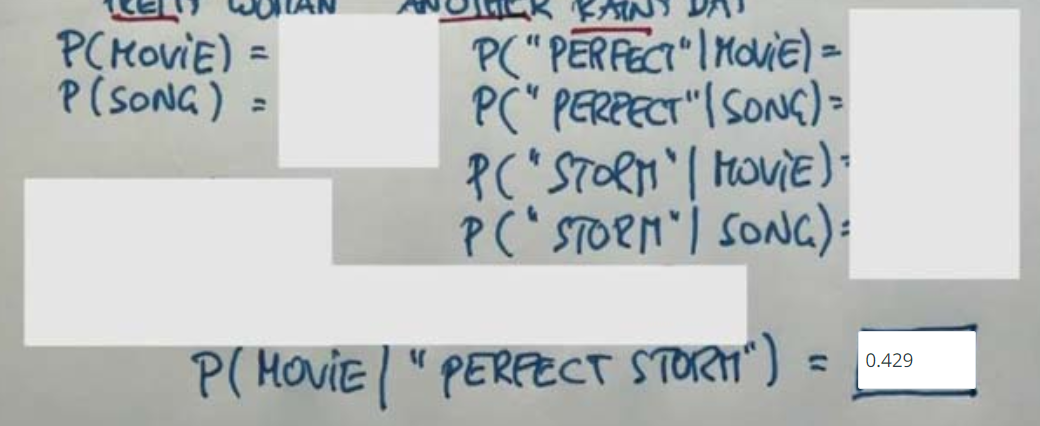 PRETTY WOMAN ANOTHER RAINY DAY
P(MOVIE) =
P(SONG) =
P("PERFECT"|MOVIE)=
P("PERFECT"|SONG)=
P("STORM"|MOVIE)=
P("STORM"|SONG)=
P(MOVIE|"PERFECT STORM") = 0.429